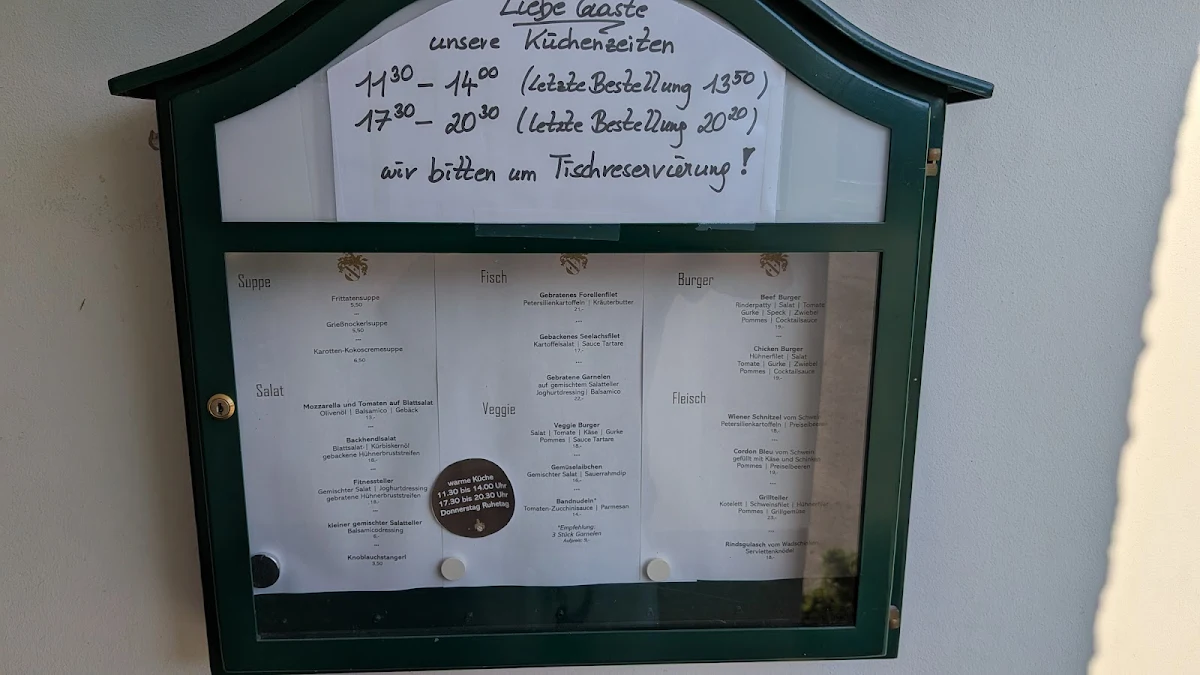 Liebe Gäste
unsere Küchenzeiten
11³⁰ – 14⁰⁰ (letzte Bestellung 13⁵⁰)
17³⁰ – 20³⁰ (letzte Bestellung 20²⁰)
wir bitten um Tischreservierung!
Suppe
Frittatensuppe
5,50
---
Grießnockerlsuppe
5,50
---
Karotten-Kokoscremesuppe
6,50
Salat
Mozzarella und Tomaten auf Blattsalat
Olivenöl | Balsamico | Gebäck
---
Backhendlsalat
Blattsalat | Kürbiskernöl
gebackene Hühnerbruststreifen
---
Fitnessteller
Gemischter Salat | Joghurtdressing
gebratene Hühnerbruststreifen
---
kleiner gemischter Salatteller
Balsamicodressing
---
Knoblauchstangerl
3,50
Fisch
Gebratenes Forellenfilet
Petersilienkartoffeln | Kräuterbutter
21,-
---
Gebackenes Seelachsfilet
Kartoffelsalat | Sauce Tartare
17,-
---
Gebratene Garnelen
auf gemischtem Salatteller
Joghurtdressing | Balsamico
22,-
Veggie
Veggie Burger
Salat | Tomate | Käse | Gurke
Pommes | Sauce Tartare
---
Gemüselaibchen
Gemischter Salat | Sauerrahmdip
---
Bandnudeln*
Tomaten-Zucchinisauce | Parmesan
*Empfehlung:
3 Stück Garnelen
Aufpreis
warme Küche
11.30 bis 14.00 Uhr
17.30 bis 20.30 Uhr
Donnerstag Ruhetag
Burger
Beef Burger
Rinderpatty | Salat | Tomate
Gurke | Speck | Zwiebel
Pommes | Cocktailsauce
---
Chicken Burger
Hühnerfilet | Salat
Tomate | Gurke | Zwiebel
Pommes | Cocktailsauce
Fleisch
Wiener Schnitzel vom Schwein
Petersilienkartoffeln | Preiselbeeren
---
Cordon Bleu vom Schwein
gefüllt mit Käse und Schinken
Pommes | Preiselbeeren
---
Grillteller
Kotelett | Schweinsfilet |
Pommes | Grillgemüse
---
Rindsgulasch vom
Serviettenknödel